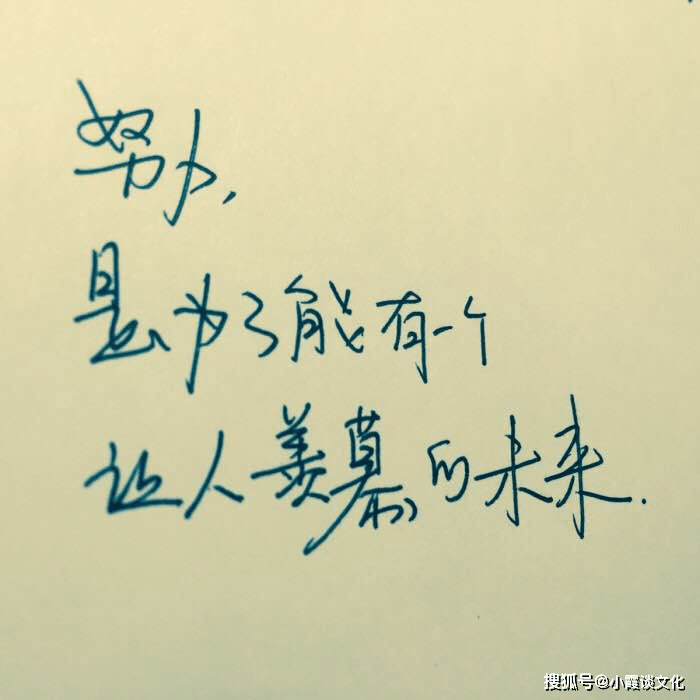 努力，
是为了能有一个
让人羡慕的未来.
搜狐号@小霞谈文化